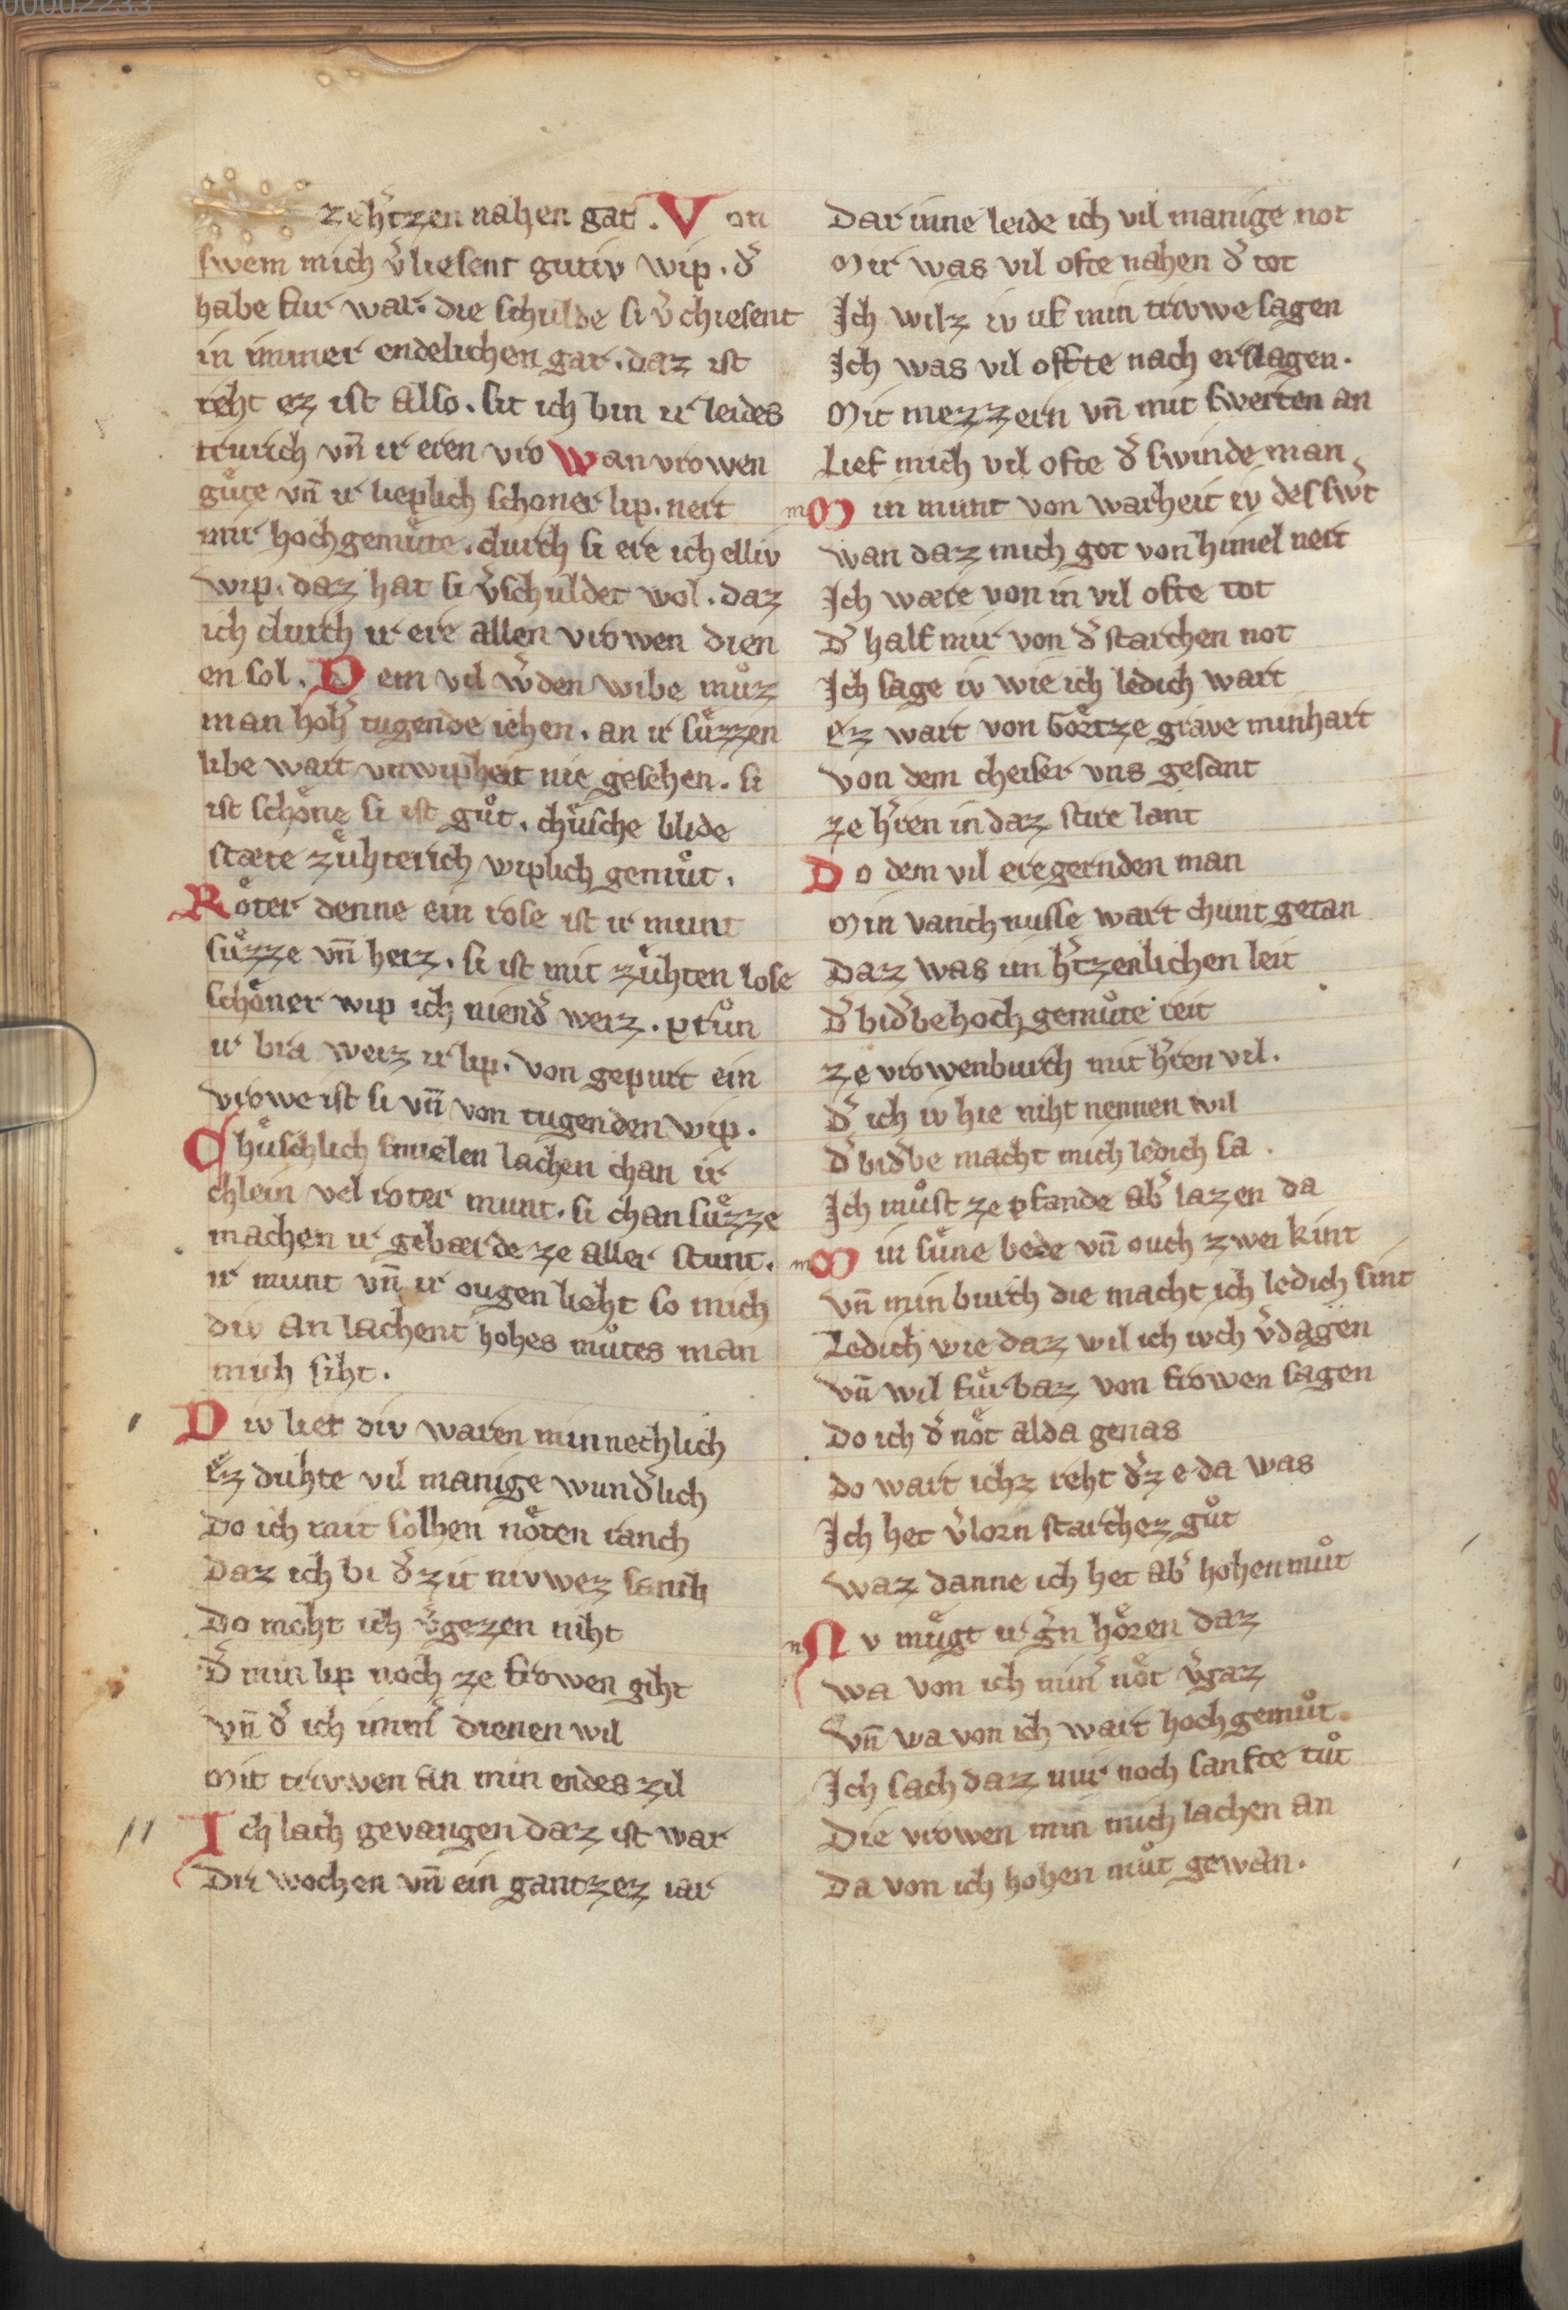 00002233
zeh̾tzen nahen gat. Von
swem mich v̾liesent gutiv wip. d̾
habe fur war. die schulde si v̾chiesent
in immer endelichen gar. daz ist
reht ez ist also. sit ich bin ir leides
trurich vn̄ ir eren vro Wan vrowen
guͤte vn̄ ir lieplich schoner lip. nert
mir hochgemuͤte. durch si ere ich elliv
wip. daz hat si v̾schuldet wol. daz
ich durch ir ere allen vrowen dien
en sol. Dem vil w̾den wibe muͦz
man hoh̾ tugende iehen. an ir suͤzzen
libe wart vnwipheit nie gesehen. si
ist schoͤne si ist guͦt. chuͤsche blide
stæte zuͤhterich wiplich gemuͦt.
Roͤter denne ein rose ist ir munt
suͤzze vn̄ heiz. si ist mit zuͤhten lose
schoͤner wip ich niend̾ weiz. prͦun
ir bra weiz ir lip. von gepurt ein
vrowe ist si vn̄ von tugenden wip.
Chuͤschlich smielen lachen chan ir
chlein vil roter munt. si chan suͤzze
machen ir gebærde ze aller stunt.
ir munt vn̄ ir ougen lieht so mich
div an lachent hohes muͦtes man
mich siht.
Div liet div waren minnechlich
Ez duhte vil manige wund̾lich
Do ich mit solhen noͤten ranch
Daz ich bi d̾ zit nivwez sanch
Do moht ich v̾gezen niht
D̾ min lip noch ze frowen giht
vn̄ d̾ ich imm̾ dienen wil
Mit trivwen an min endes zil
Ich lach gevangen daz ist war
Dri wochen vn̄ ein gantzez iar
Dar inne leide ich vil manige not
Mir was vil ofte nahen d̾ tot
Ich wilz iv uf min trivwe sagen
Ich was vil offte nach erslagen.
Mit mezzern vn̄ mit swerten an
Lief mich vil ofte d̾ swinde man
Min munt von warheit iv des sw̾t
wan daz mich got von himel nert
Ich wære von in vil ofte tot
D̾ half mir von d̾ starchen not
Ich sage iv wie ich ledich wart
Ez wart von Goͤrtze grave minhart
von dem cheiser vns gesant
ze h̾ren in daz stire lant
Do dem vil ere gernden man
Min vanchnusse wart chunt getan
Daz was im h̾tzenlichen leit
D̾ bid̾be hoch gemuͦte reit
ze vrowenburch mit h̾ren vil.
D̾ ich iv hie niht nennen wil
D̾ bid̾be macht mich ledich sa.
Ich muͦst ze pfande ab̾ lazen da
Min suͤne bede vn̄ ouch zwei kint
vn̄ min burch die macht ich ledich sint
Ledich wie daz wil ich iuch v̾dagen
vn̄ wil fuͤrbaz von frowen sagen
Do ich d̾ noͤt alda genas
Do wart ichz reht d̾z e da was
Ich het v̾lorn starchez guͦt
waz danne ich het ab̾ hohen muͦt
Nv muͤgt ir g̾n hoͤren daz
wa von ich min̾ noͤt v̾gaz
vn̄ wa von ich wart hochgemuͦt.
Ich sach daz mir noch sanfte tuͦt
Die vrowen min mich lachen an
Da von ich hohen muͦt gewan.